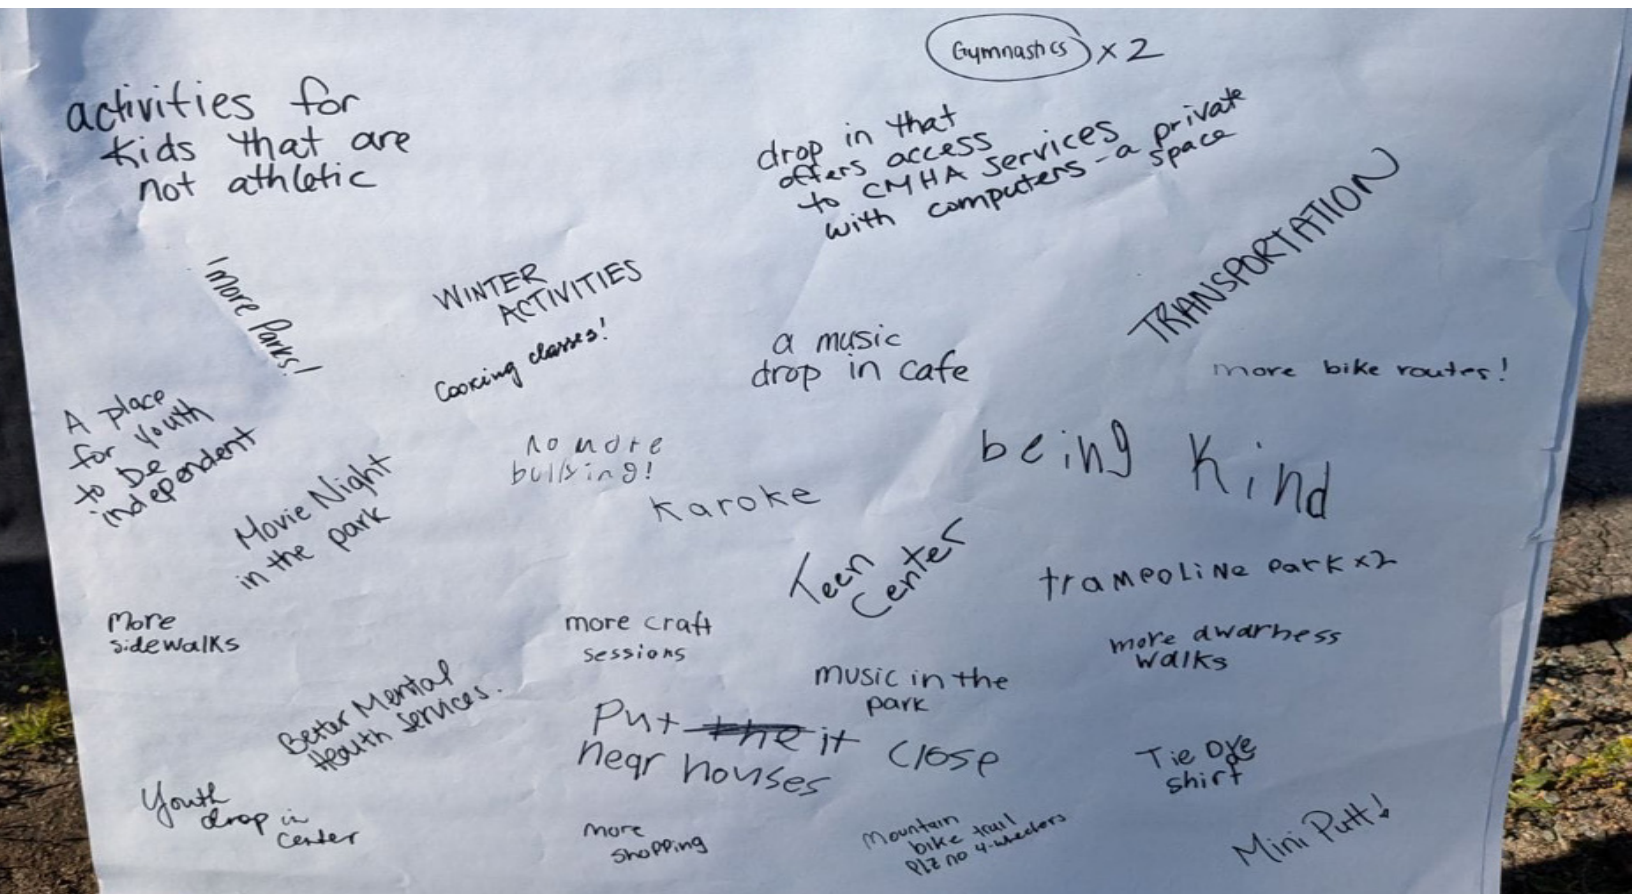 Gymnastics x 2
activities for
kids that are
not athletic
drop in that
offers access
to CMHA services
with computers - a private
space
TRANSPORTATION
! more Parks!
WINTER
ACTIVITIES
Cooking classes!
a music
drop in cafe
more bike routes!
A place
for youth
to be
independent
Movie Night
in the park
no more
bullying!
Karoke
being kind
Teen
Center
trampoline park x2
More
sidewalks
more craft
sessions
more awarness
walks
music in the
park
Better Mental
Health Services.
Put the it close
near houses
Tie Dye
shirt
Youth
drop in
center
more
shopping
Mountain
bike trail
plz no 4-wheelers
Mini Putt!